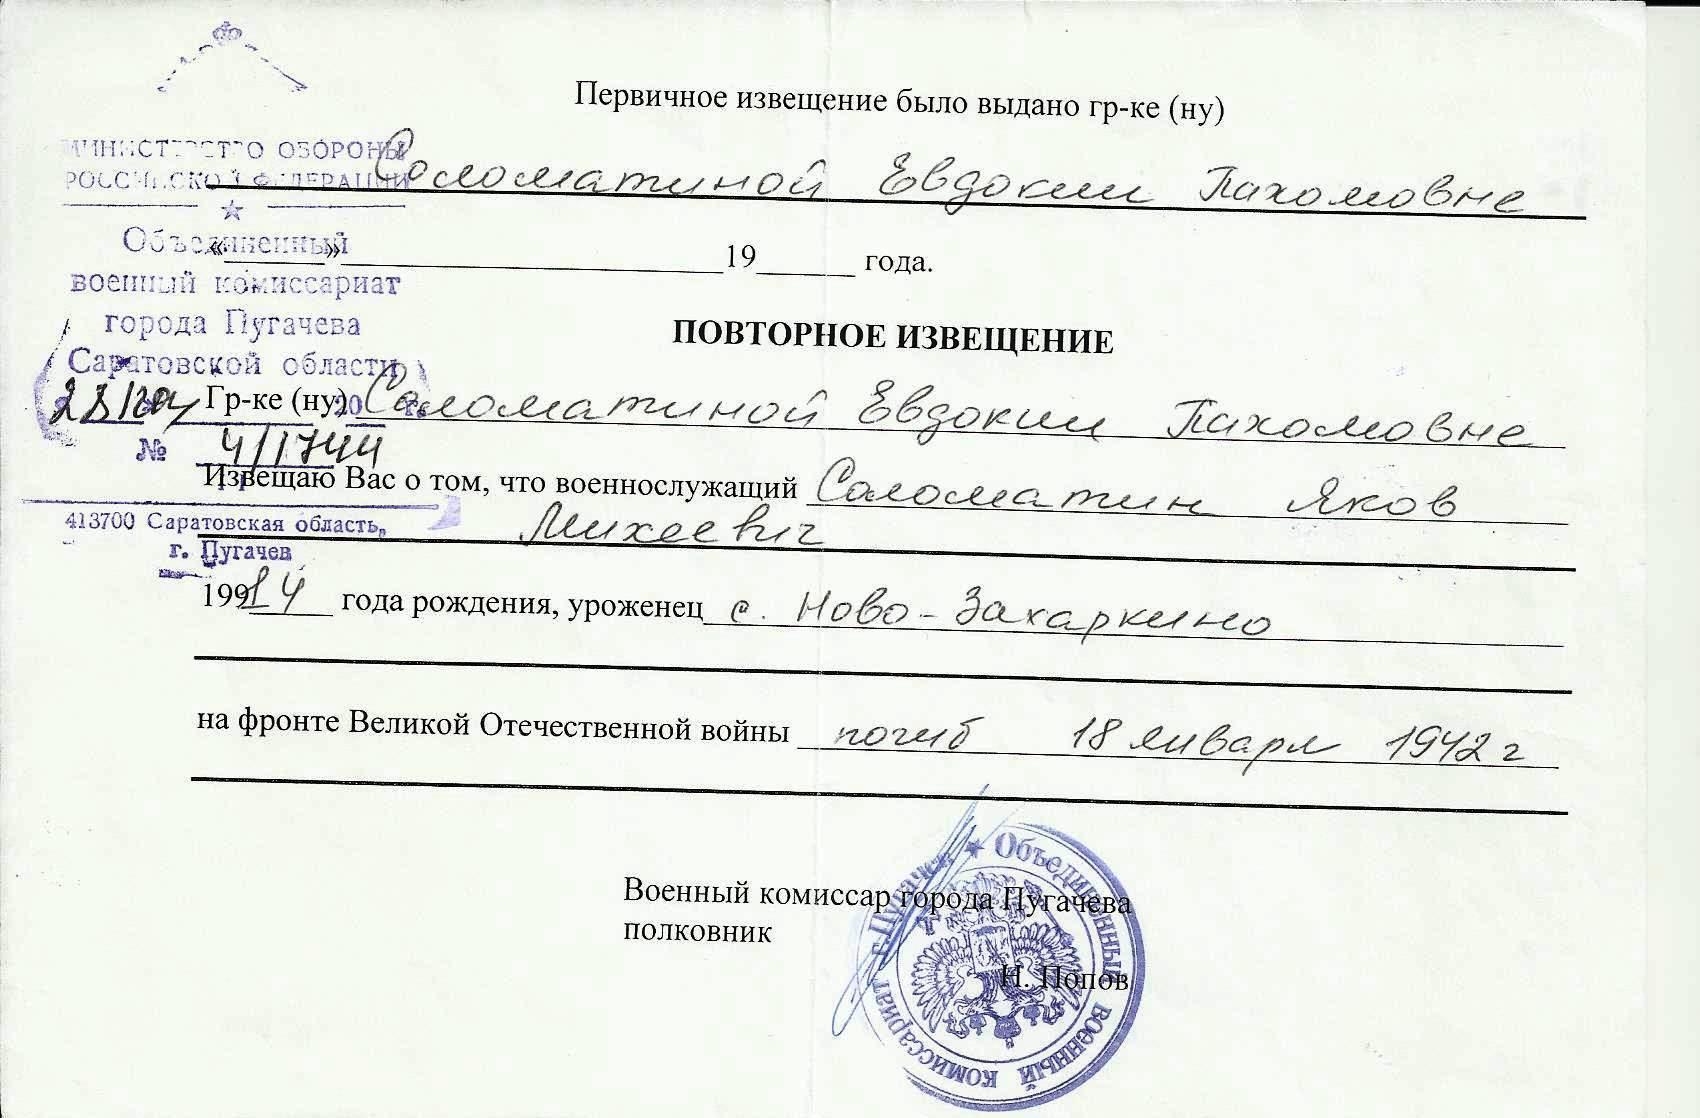 Первичное извещение было выдано гр-ке (ну)
МИНИСТЕРСТВО ОБОРОНЫ
РОССИЙСКОЙ ФЕДЕРАЦИИ
Соломатиной Евдокии Пахомовне
Объединенный
«______»______________________19______ года.
военный комиссариат
города Пугачева
ПОВТОРНОЕ ИЗВЕЩЕНИЕ
Саратовской области
20 г.
Гр-ке (ну) Соломатиной Евдокии Пахомовне
№ 4/1744
Извещаю Вас о том, что военнослужащий Соломатин Яков
Михеевич
413700 Саратовская область,
г. Пугачев
1914 года рождения, уроженец с. Ново-Захаркино
на фронте Великой Отечественной войны погиб 18 января 1942 г
Военный комиссар города Пугачева
полковник
Н. Попов
Объединенный военный комиссариат г. Пугачев